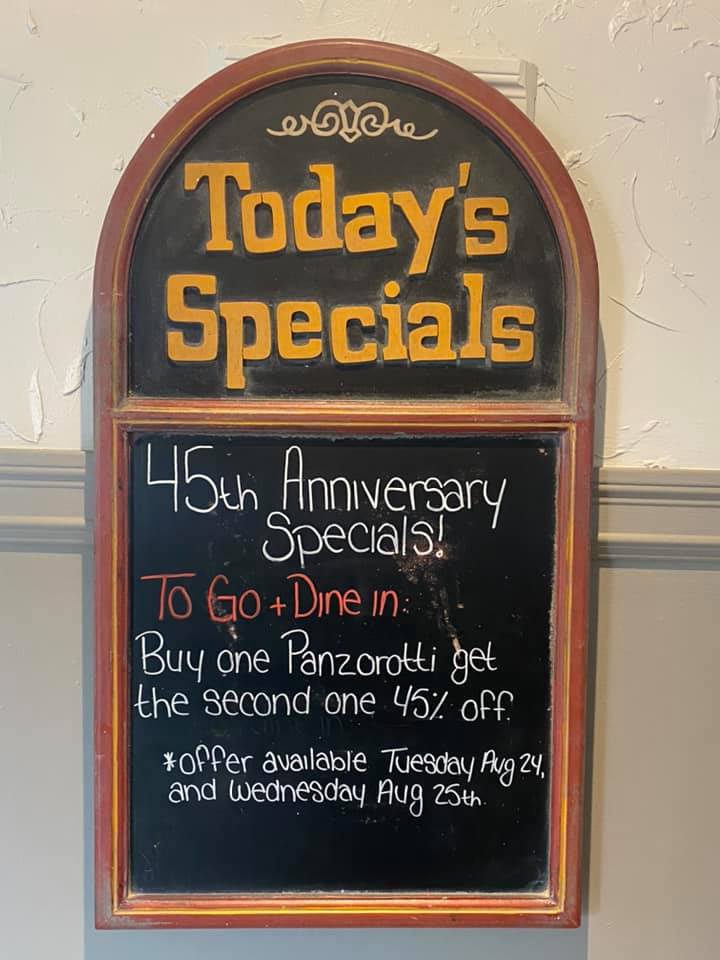 Today's
Specials
45th Anniversary
Specials!
To Go + Dine in:
Buy one Panzorotti get
the second one 45% off.
*offer available Tuesday Aug 24,
and Wednesday Aug 25th.